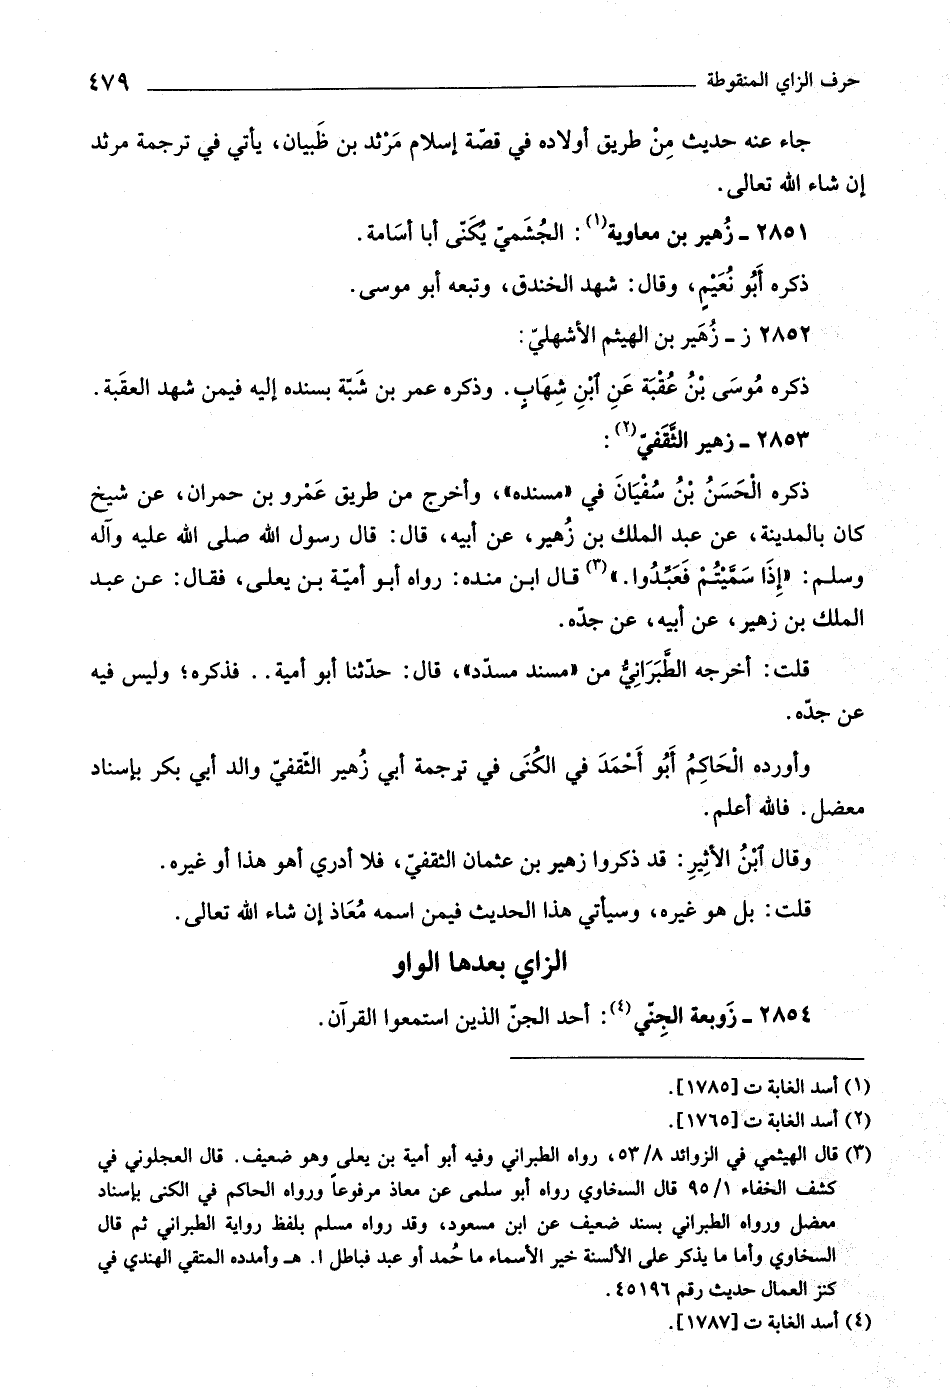 حرف الزاي المنقوطة ٤٧٩
جاء عنه حديث مِنْ طريق أولاده في قصّة إسلام مَرْثد بن ظَبيان، يأتي في ترجمة مرثد
إن شاء الله تعالى.
٢٨٥١ ـ زُهير بن معاوية(١): الجُشَميّ يُكَنّى أبا أسَامة.
ذكره أَبُو نُعَيْمٍ، وقال: شهد الخندق، وتبعه أبو موسى.
٢٨٥٢ ز ـ زُهَير بن الهيثم الأشهليّ:
ذكره مُوسَى بْنُ عُقْبَة عَنِ ٱبْنِ شِهَابٍ. وذكره عمر بن شَبّة بسنده إليه فيمن شهد العقَبة.
٢٨٥٣ ـ زهير الثَّقَفيّ(٢):
ذكره الْحَسَنُ بْنُ سُفْيَانَ في «مسنده»، وأخرج من طريق عَمْرو بن حمران، عن شيخ
كان بالمدينة، عن عبد الملك بن زُهير، عن أبيه، قال: قال رسول الله صلى الله عليه وآله
وسلم: «إِذَا سَمَّيْتُمْ فَعَبِّدُوا.»(٣) قال ابن منده: رواه أبو أميّة بن يعلى، فقال: عن عبد
الملك بن زهير، عن أبيه، عن جدّه.
قلت: أخرجه الطَّبَرَانِيُّ من «مسند مسدّد»، قال: حدّثنا أبو أمية.. فذكره؛ وليس فيه
عن جدّه.
وأورده الْحَاكِمُ أَبُو أَحْمَدَ في الكُنَى في ترجمة أبي زُهير الثّقفيّ والد أبي بكر بإسناد
معضل. فالله أعلم.
وقال ٱبْنُ الأثِيرِ: قد ذكروا زهير بن عثمان الثقفيّ، فلا أدري أهو هذا أو غيره.
قلت: بل هو غيره، وسيأتي هذا الحديث فيمن اسمه مُعَاذ إن شاء الله تعالى.
الزاي بعدها الواو
٢٨٥٤ ـ زَوبعة الجِنّي(٤): أحد الجنّ الذين استمعوا القرآن.
(١) أسد الغابة ت [١٧٨٥].
(٢) أسد الغابة ت [١٧٦٥].
(٣) قال الهيثمي في الزوائد ٥٣/٨، رواه الطبراني وفيه أبو أمية بن يعلى وهو ضعيف. قال العجلوني في
كشف الخفاء ٩٥/١ قال السخاوي رواه أبو سلمى عن معاذ مرفوعاً ورواه الحاكم في الكنى بإسناد
معضل ورواه الطبراني بسند ضعيف عن ابن مسعود، وقد رواه مسلم بلفظ رواية الطبراني ثم قال
السخاوي وأما ما يذكر على الألسنة خير الأسماء ما حُمد أو عبد فباطل ا. هـ وأمدده المتقي الهندي في
كنز العمال حديث رقم ٤٥١٩٦.
(٤) أسد الغابة ت [١٧٨٧].